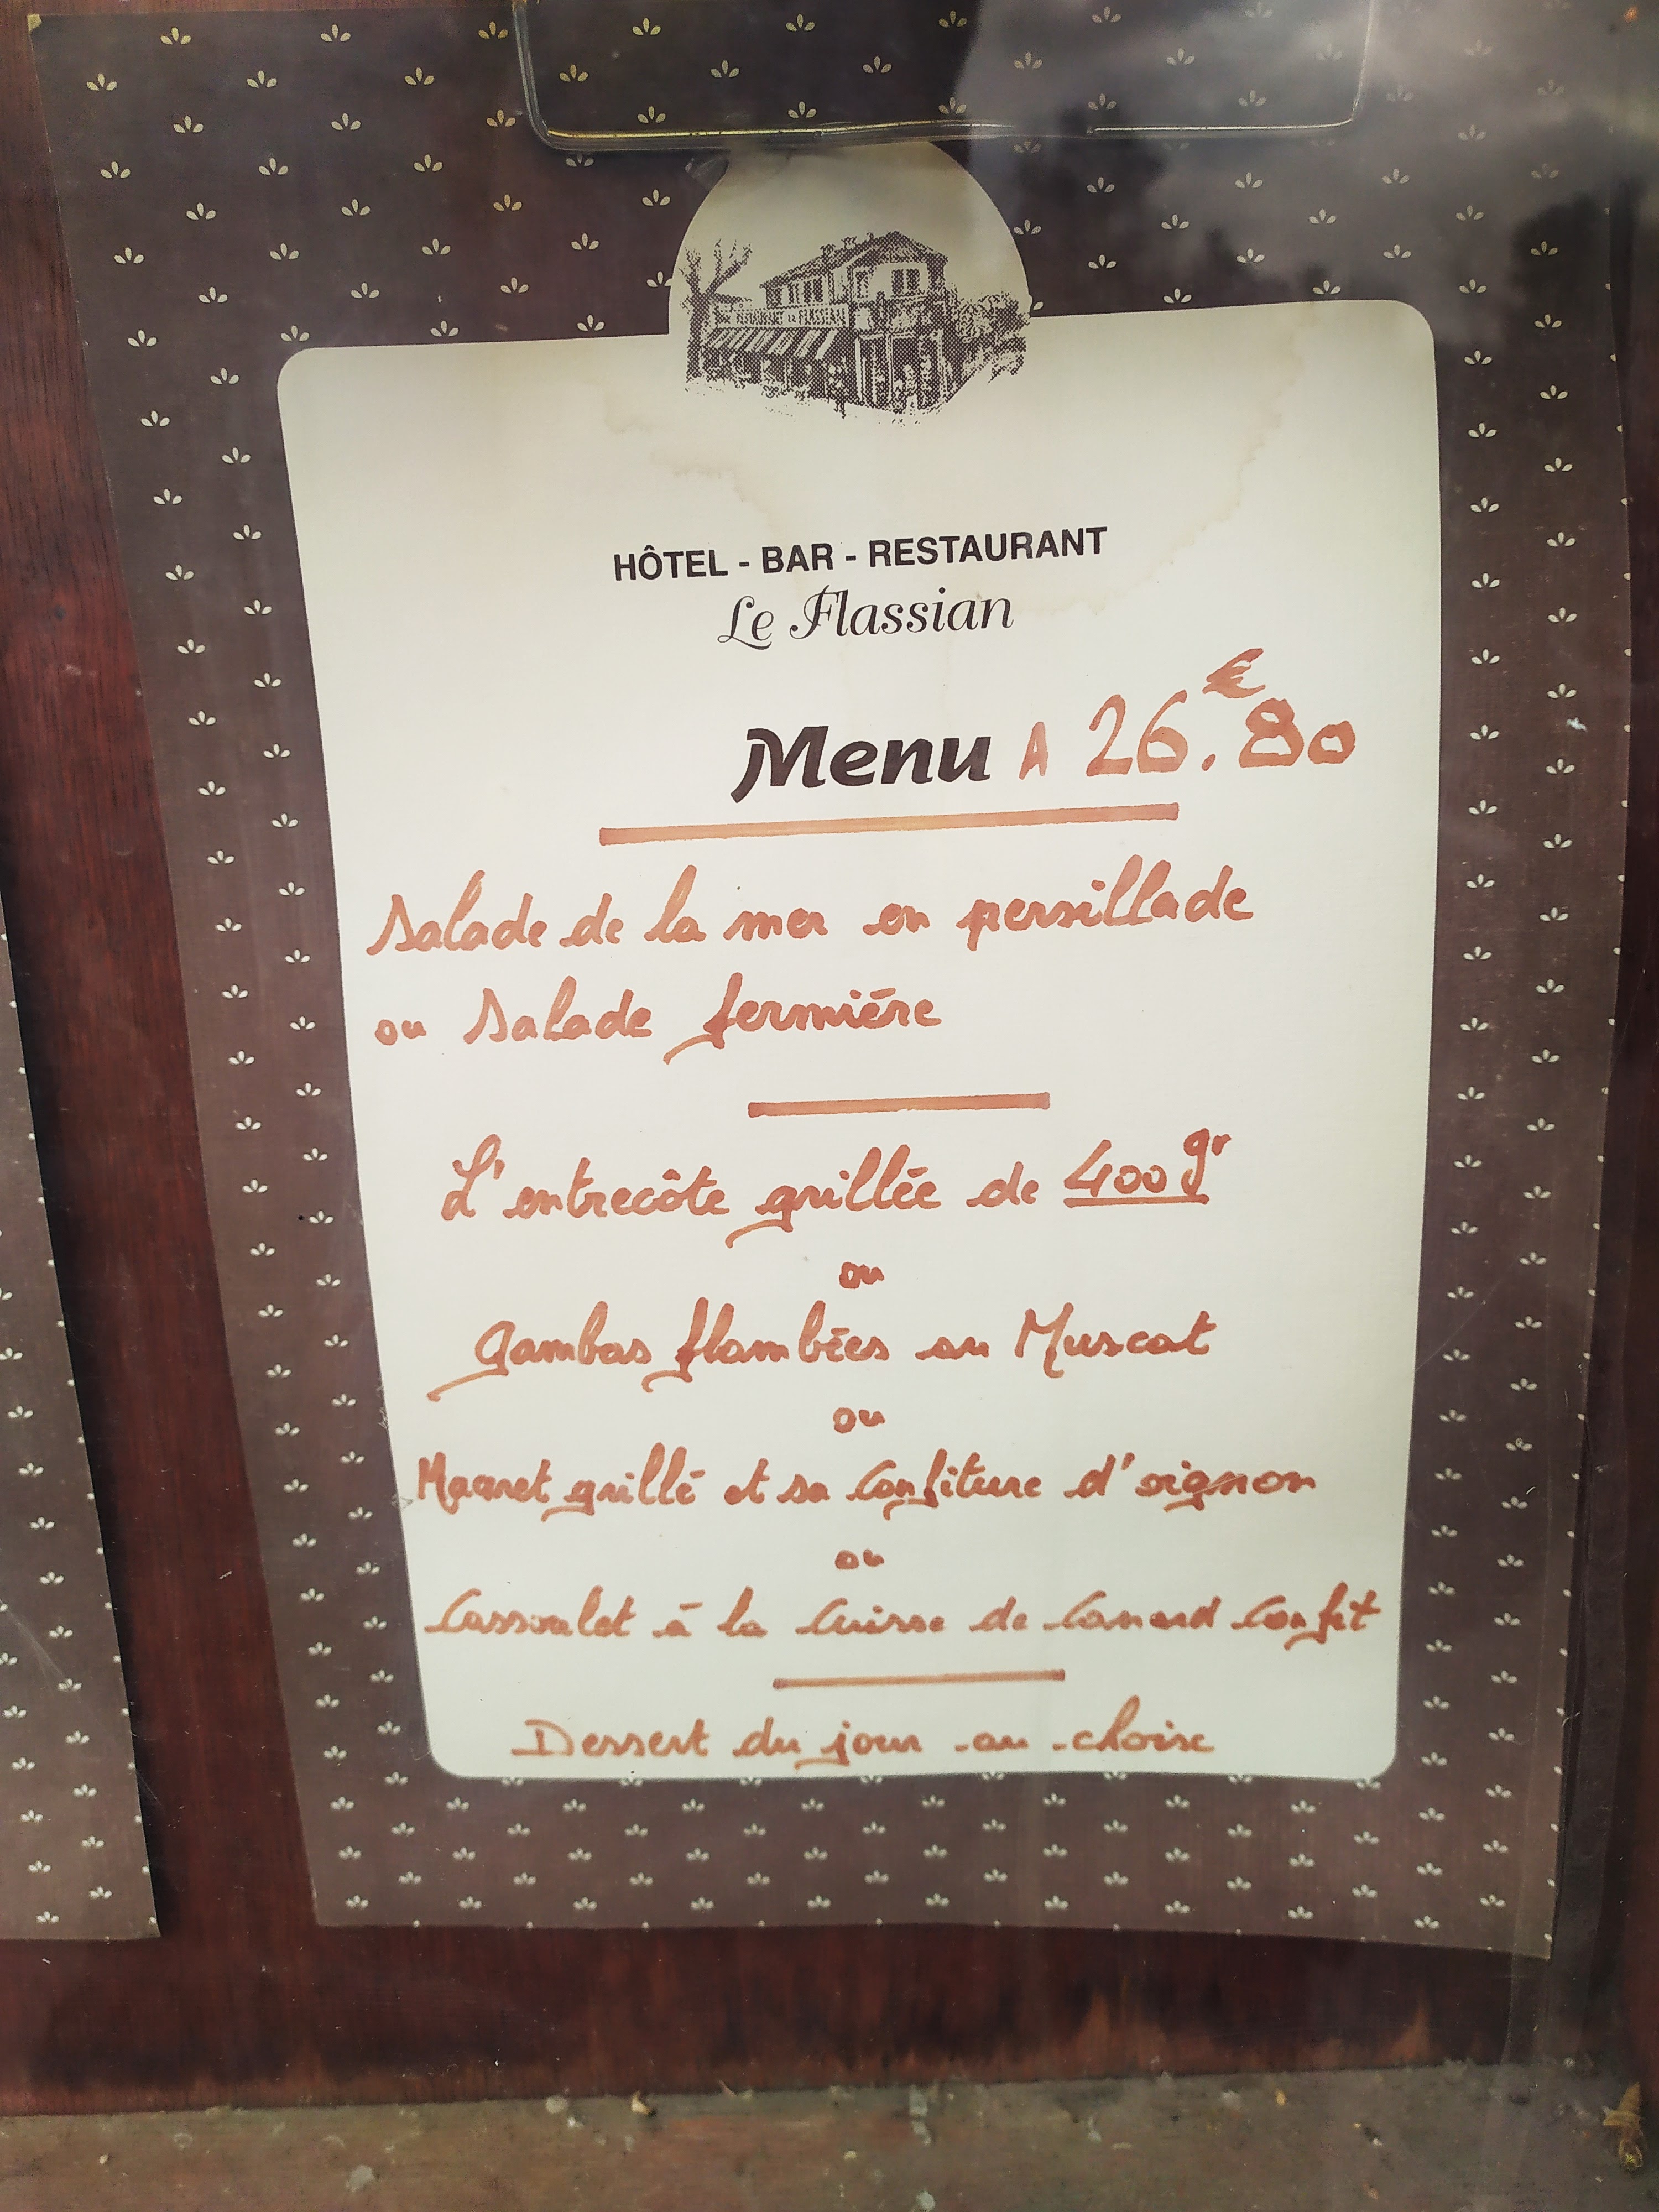 RESTAURANT LE FLASSIAN
HÔTEL - BAR - RESTAURANT
Le Flassian
Menu A 26.€80
Salade de la mer en persillade
ou Salade fermière
L'entrecôte grillée de 400gr
ou
Gambas flambées au Muscat
ou
Magret grillé et sa Confiture d'oignon
ou
Cassoulet à la Cuisse de Canard Confit
Dessert du jour au choix